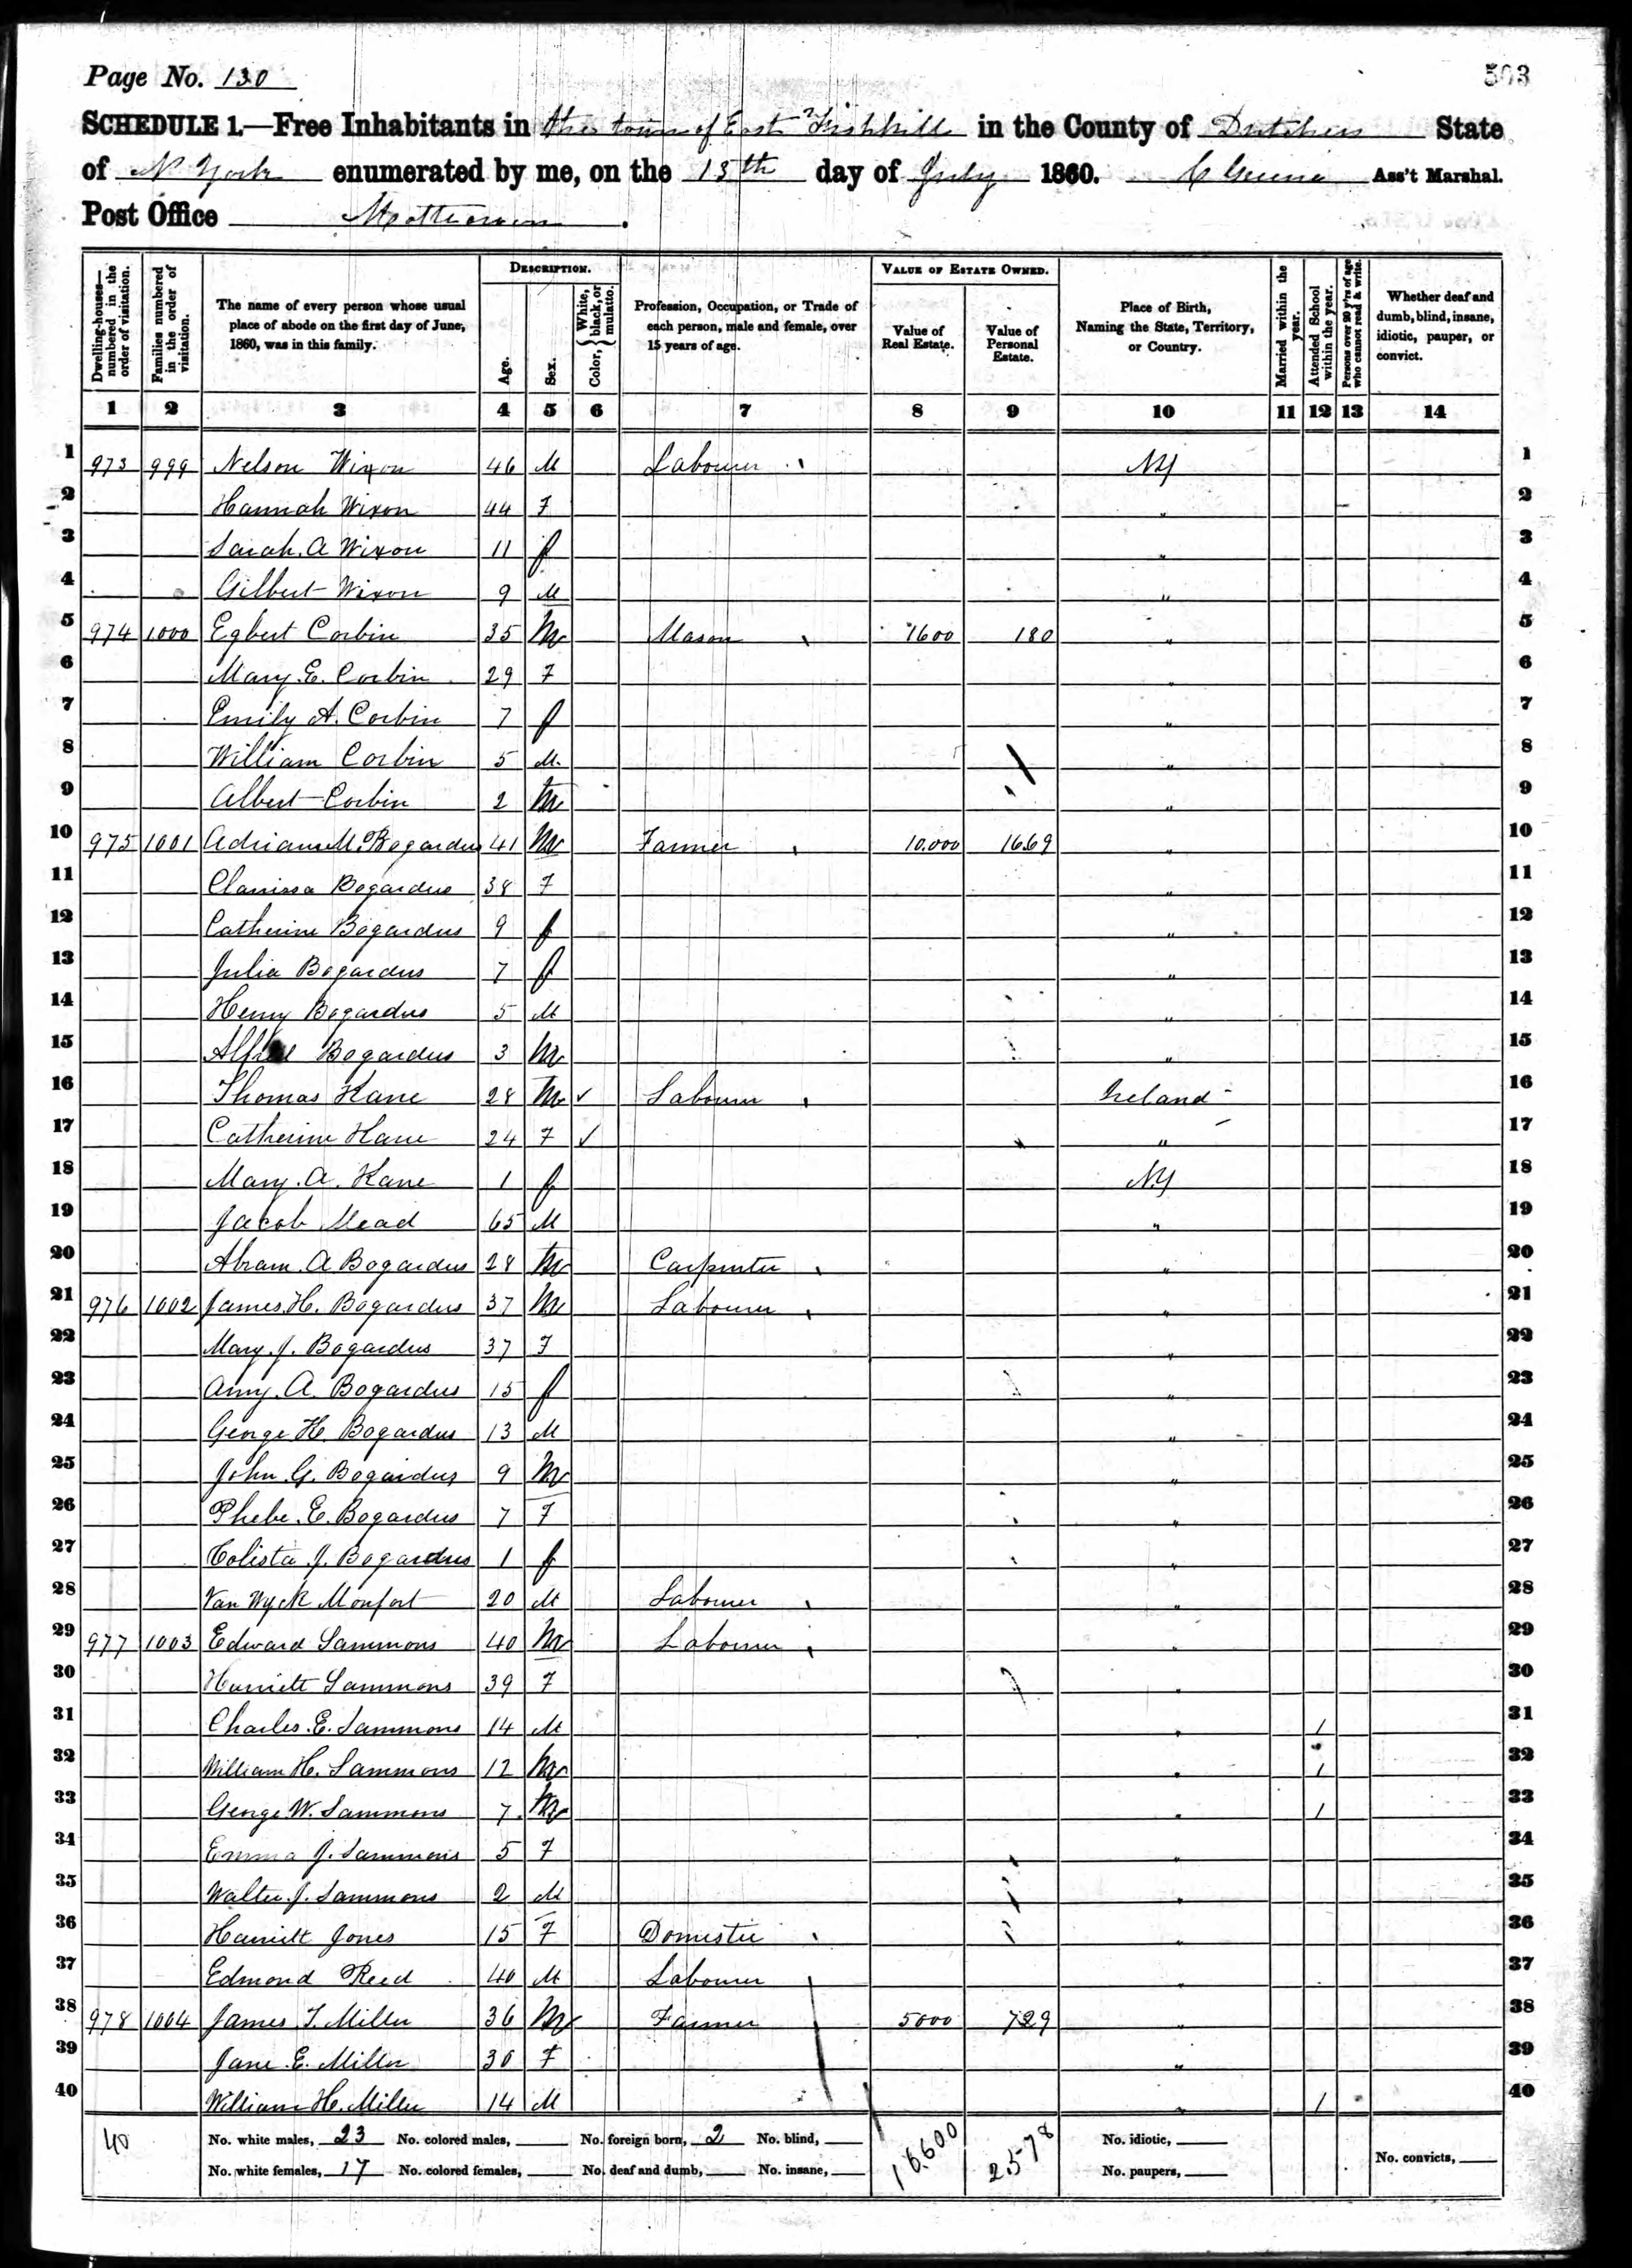 Page No. 130
503
SCHEDULE 1.—Free Inhabitants in the town of East Fishkill in the County of Dutchess State
of N York enumerated by me, on the 13th day of July 1860. Ass't Marshal.
Post Office Matteawan.
Dwelling-houses—numbered in the order of visitation. Families numbered in the order of visitation. The name of every person whose usual place of abode on the first day of June, 1860, was in this family. DESCRIPTION. Age. Sex. Color, White, black, or mulatto. Profession, Occupation, or Trade of each person, male and female, over 15 years of age. VALUE OF ESTATE OWNED. Value of Real Estate. Value of Personal Estate. Place of Birth, Naming the State, Territory, or Country. Married within the year. Attended School within the year. Persons over 20 y'rs of age who cannot read & write. Whether deaf and dumb, blind, insane, idiotic, pauper, or convict.
1 2 3 4 5 6 7 8 9 10 11 12 13 14
1 973 999 Nelson Wixon 46 M Labourer NY 1
2 Hannah Wixon 44 F " 2
3 Sarah. A Wixon 11 f " 3
4 Gilbert Wixon 9 M " 4
5 974 1000 Egbert Corbin 35 M Mason 1600 180 " 5
6 Mary. E. Corbin 29 F " 6
7 Emily A. Corbin 7 f " 7
8 William Corbin 5 M " 8
9 Albert Corbin 2 M " 9
10 975 1001 Adriance M. Bogardus 41 M Farmer 10.000 1669 " 10
11 Clarissa Bogardus 38 F " 11
12 Catherine Bogardus 9 f " 12
13 Julia Bogardus 7 f " 13
14 Henry Bogardus 5 M " 14
15 Alfred Bogardus 3 M " 15
16 Thomas Kane 28 M ✓ Labourer Ireland 16
17 Catherine Kane 24 F ✓ " 17
18 Mary. A. Kane 1 f NY 18
19 Jacob Mead 65 M " 19
20 Abram. A Bogardus 28 M Carpenter " 20
21 976 1002 James. H. Bogardus 37 M Labourer " 21
22 Mary. J. Bogardus 37 F " 22
23 Amy. A. Bogardus 15 f " 23
24 George H. Bogardus 13 M " 24
25 John. G. Bogardus 9 M " 25
26 Phebe. E. Bogardus 7 F " 26
27 Colista J. Bogardus 1 f " 27
28 Van Wyck Monfort 20 M Labourer " 28
29 977 1003 Edward Sammons 40 M Labourer " 29
30 Harriett Sammons 39 F " 30
31 Charles. E. Sammons 14 M " 1 31
32 William H. Sammons 12 M " 1 32
33 George W. Sammons 7 M " 1 33
34 Emma J. Sammons 5 F " 34
35 Walter. J. Sammons 2 M " 35
36 Harriett Jones 15 F Domestic " 36
37 Edmond Reed 40 M Labourer " 37
38 978 1004 James T. Miller 36 M Farmer 5000 729 " 38
39 Jane. E. Miller 30 F " 39
40 William H. Miller 14 M " 1 40
40 No. white males, 23 No. colored males, No. foreign born, 2 No. blind, 16.600 2578 No. idiotic,
No. white females, 17 No. colored females, No. deaf and dumb, No. insane, No. paupers, No. convicts,